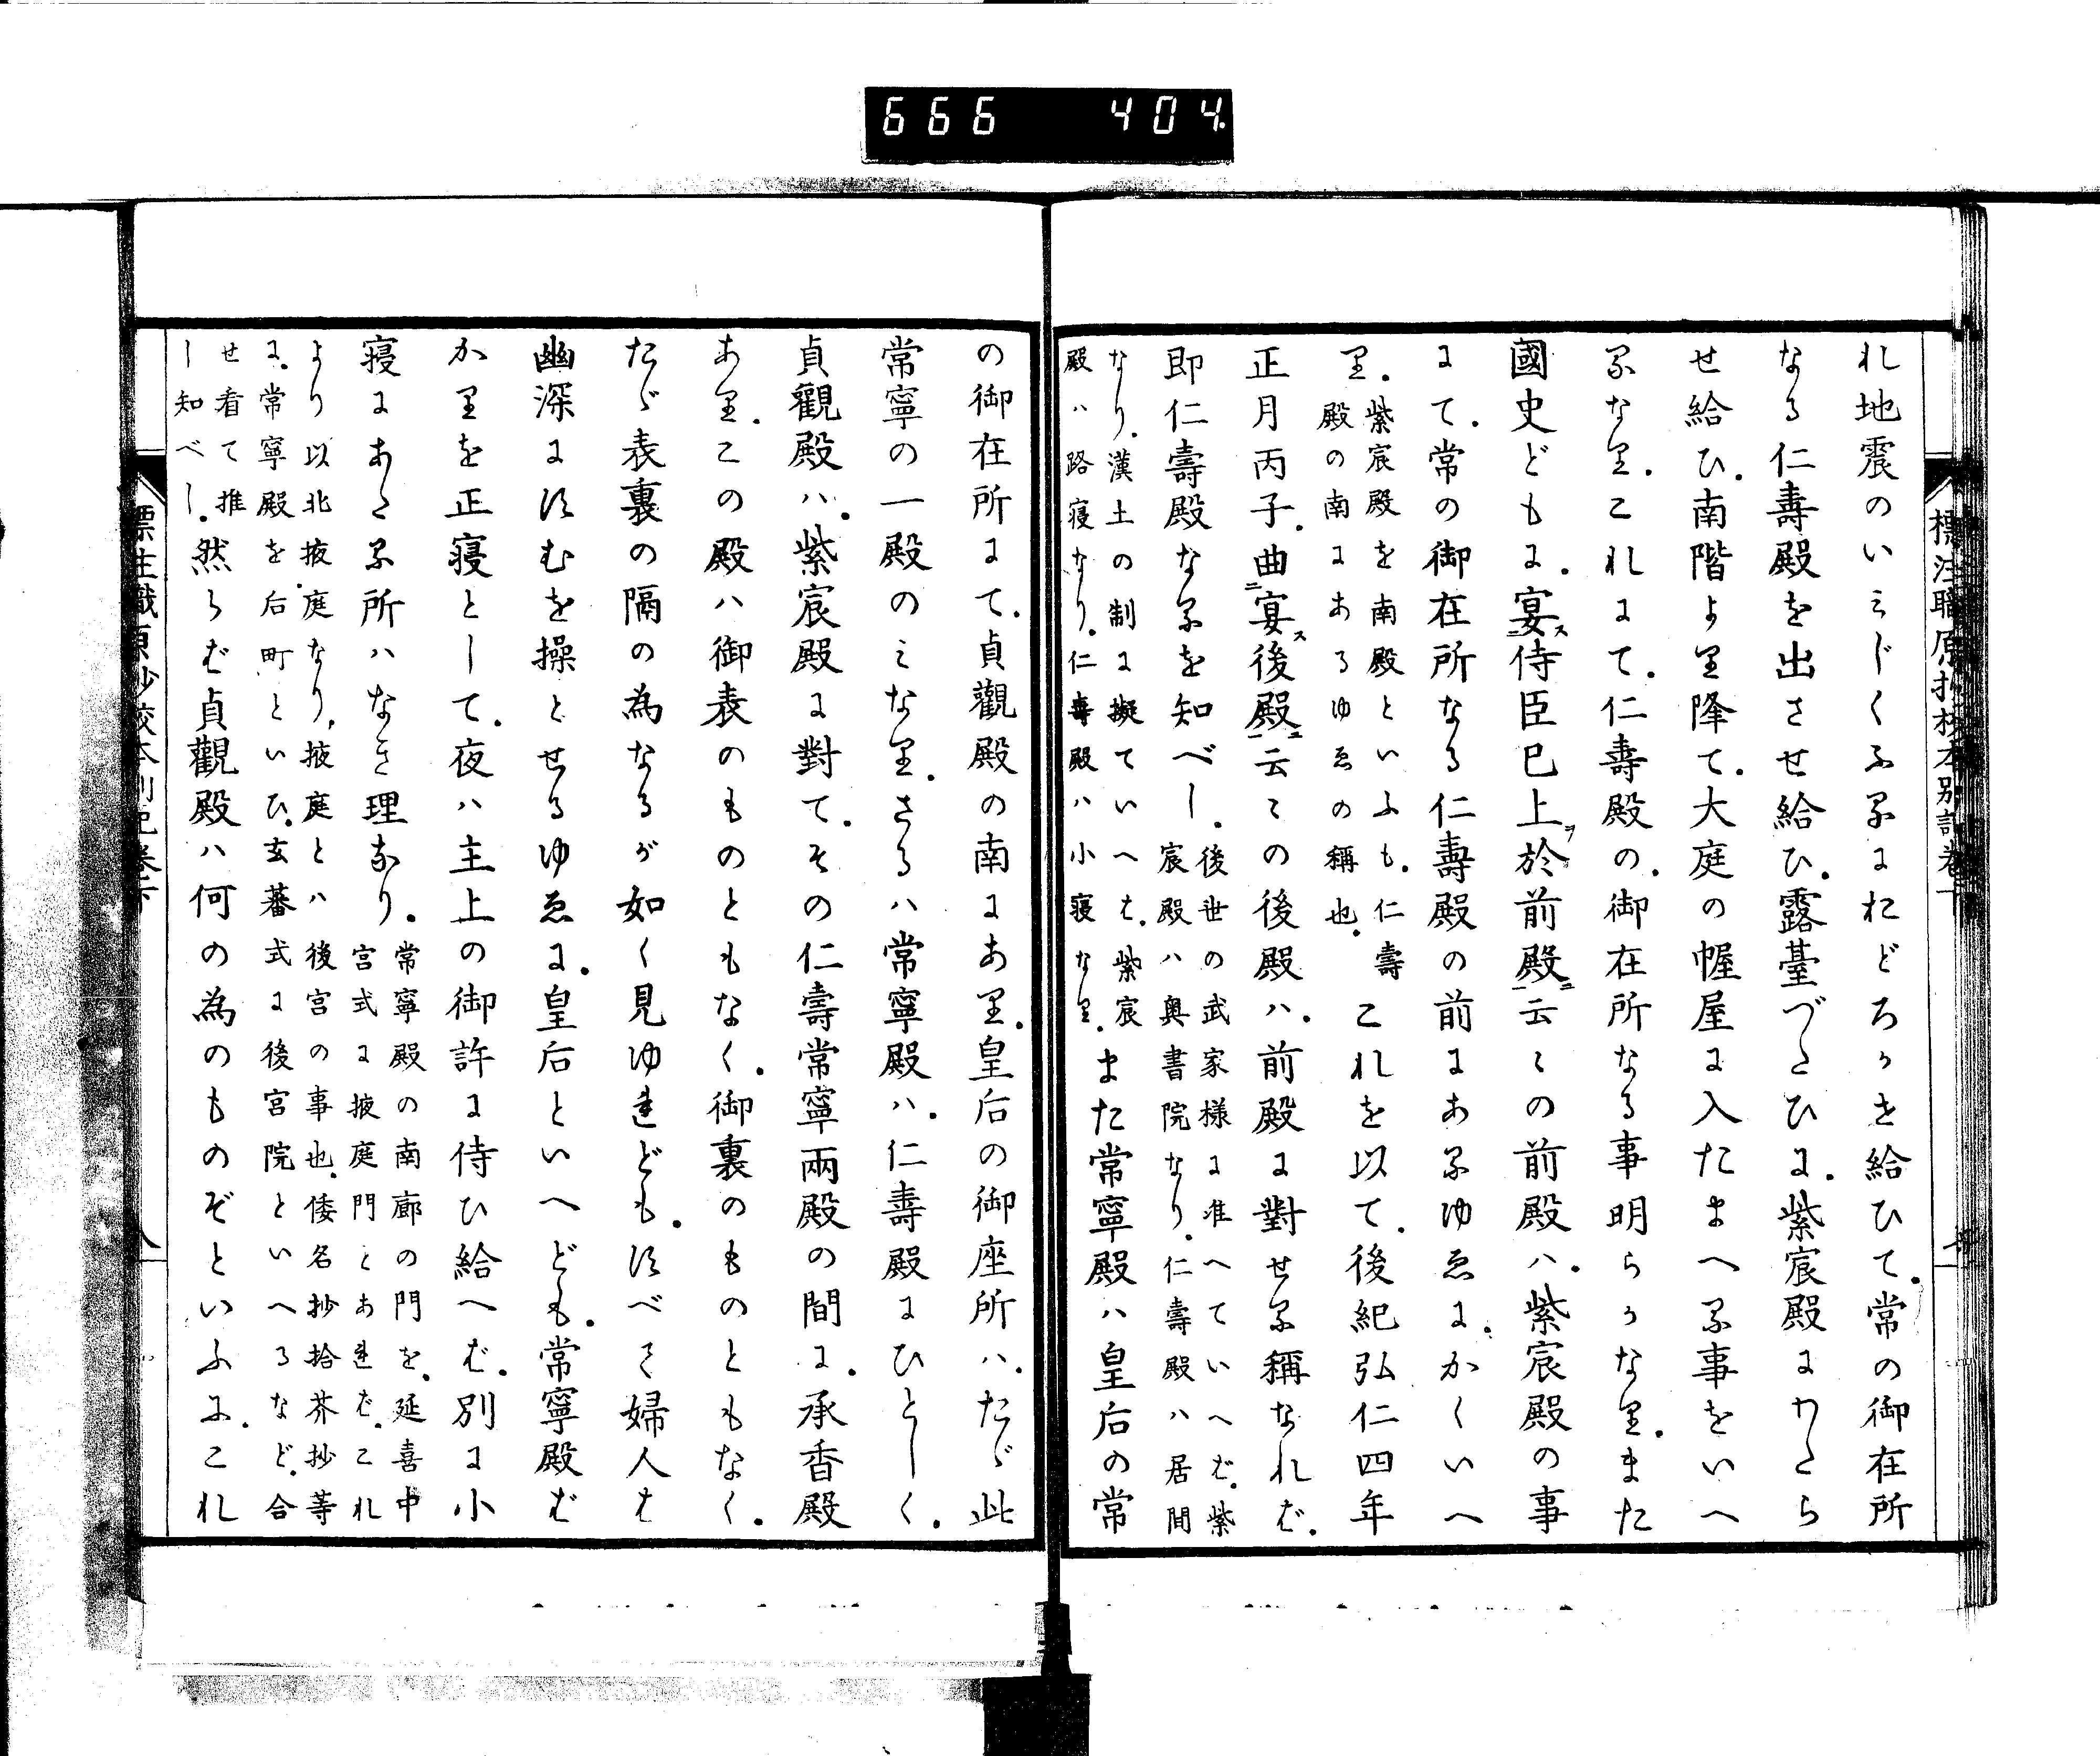 666 404.
標注職原抄校本別記卷下
れ地震のいみじくふるにおどろかせ給ひて.常の御在所
なる仁壽殿を出させ給ひ.露臺づたひに.紫宸殿にわたら
せ給ひ.南階より降て.大庭の幄屋に入たまへる事をいへ
るなり.これにて.仁壽殿の.御在所なる事明らかなり.また
國史どもに.宴ス侍臣已上ヲ於前殿ニ云〻の前殿ハ.紫宸殿の事
にて.常の御在所なる仁壽殿の前にあるゆゑに.かくいへ
り.紫宸殿を南殿といふも.仁壽
殿の南にあるゆゑの稱也.これを以て.後紀弘仁四年
正月丙子.曲ニ宴ス後殿ニ云〻の後殿ハ.前殿に對せる稱なれば.
即仁壽殿なるを知べし.後世の武家樣に准へていへば.紫
宸殿ハ奧書院なり.仁壽殿ハ居間
なり.漢土の制に擬ていへば.紫宸
殿ハ路寢なり.仁壽殿ハ小寢なり.また常寧殿ハ皇后の常
の御在所にて.貞觀殿の南にあり.皇后の御座所ハ.たゞ此
常寧の一殿のみなり.さるハ常寧殿ハ.仁壽殿にひとしく.
貞觀殿ハ.紫宸殿に對て.その仁壽常寧兩殿の間に.承香殿
あり.この殿ハ御表のものともなく.御裏のものともなく.
たゞ表裏の隔の為なるが如く見ゆれども.すべて婦人は
幽深にすむを操とせるゆゑに.皇后といへども.常寧殿ば
かりを正寢として.夜ハ主上の御許に侍ひ給へば.別に小
寢にあたる所ハなき理なり.常寧殿の南廊の門を.延喜中
宮式に掖庭門とあれば.これ
より以北掖庭なり.掖庭とハ後宮の事也.倭名抄拾芥抄等
に.常寧殿を.后町といひ.玄蕃式に後宮院といへるなど.合
せ看て推
し知べし.然らば貞觀殿ハ何の為のものぞといふに.これ
標注職原抄校本別記卷下
八